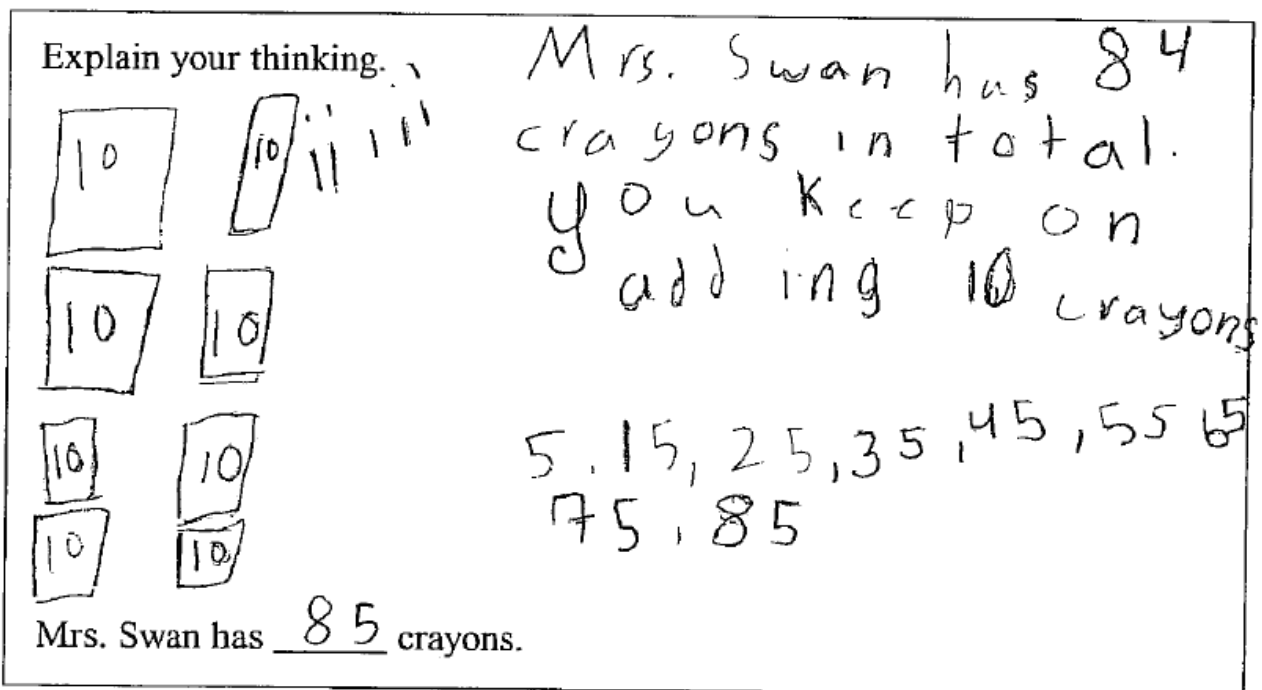 Explain your thinking.
10 10
10 10
10 10
10 10
Mrs. Swan has 84
crayons in total.
you keep on
adding 10 crayons
5, 15, 25, 35, 45, 55 65
75, 85
Mrs. Swan has 85 crayons.